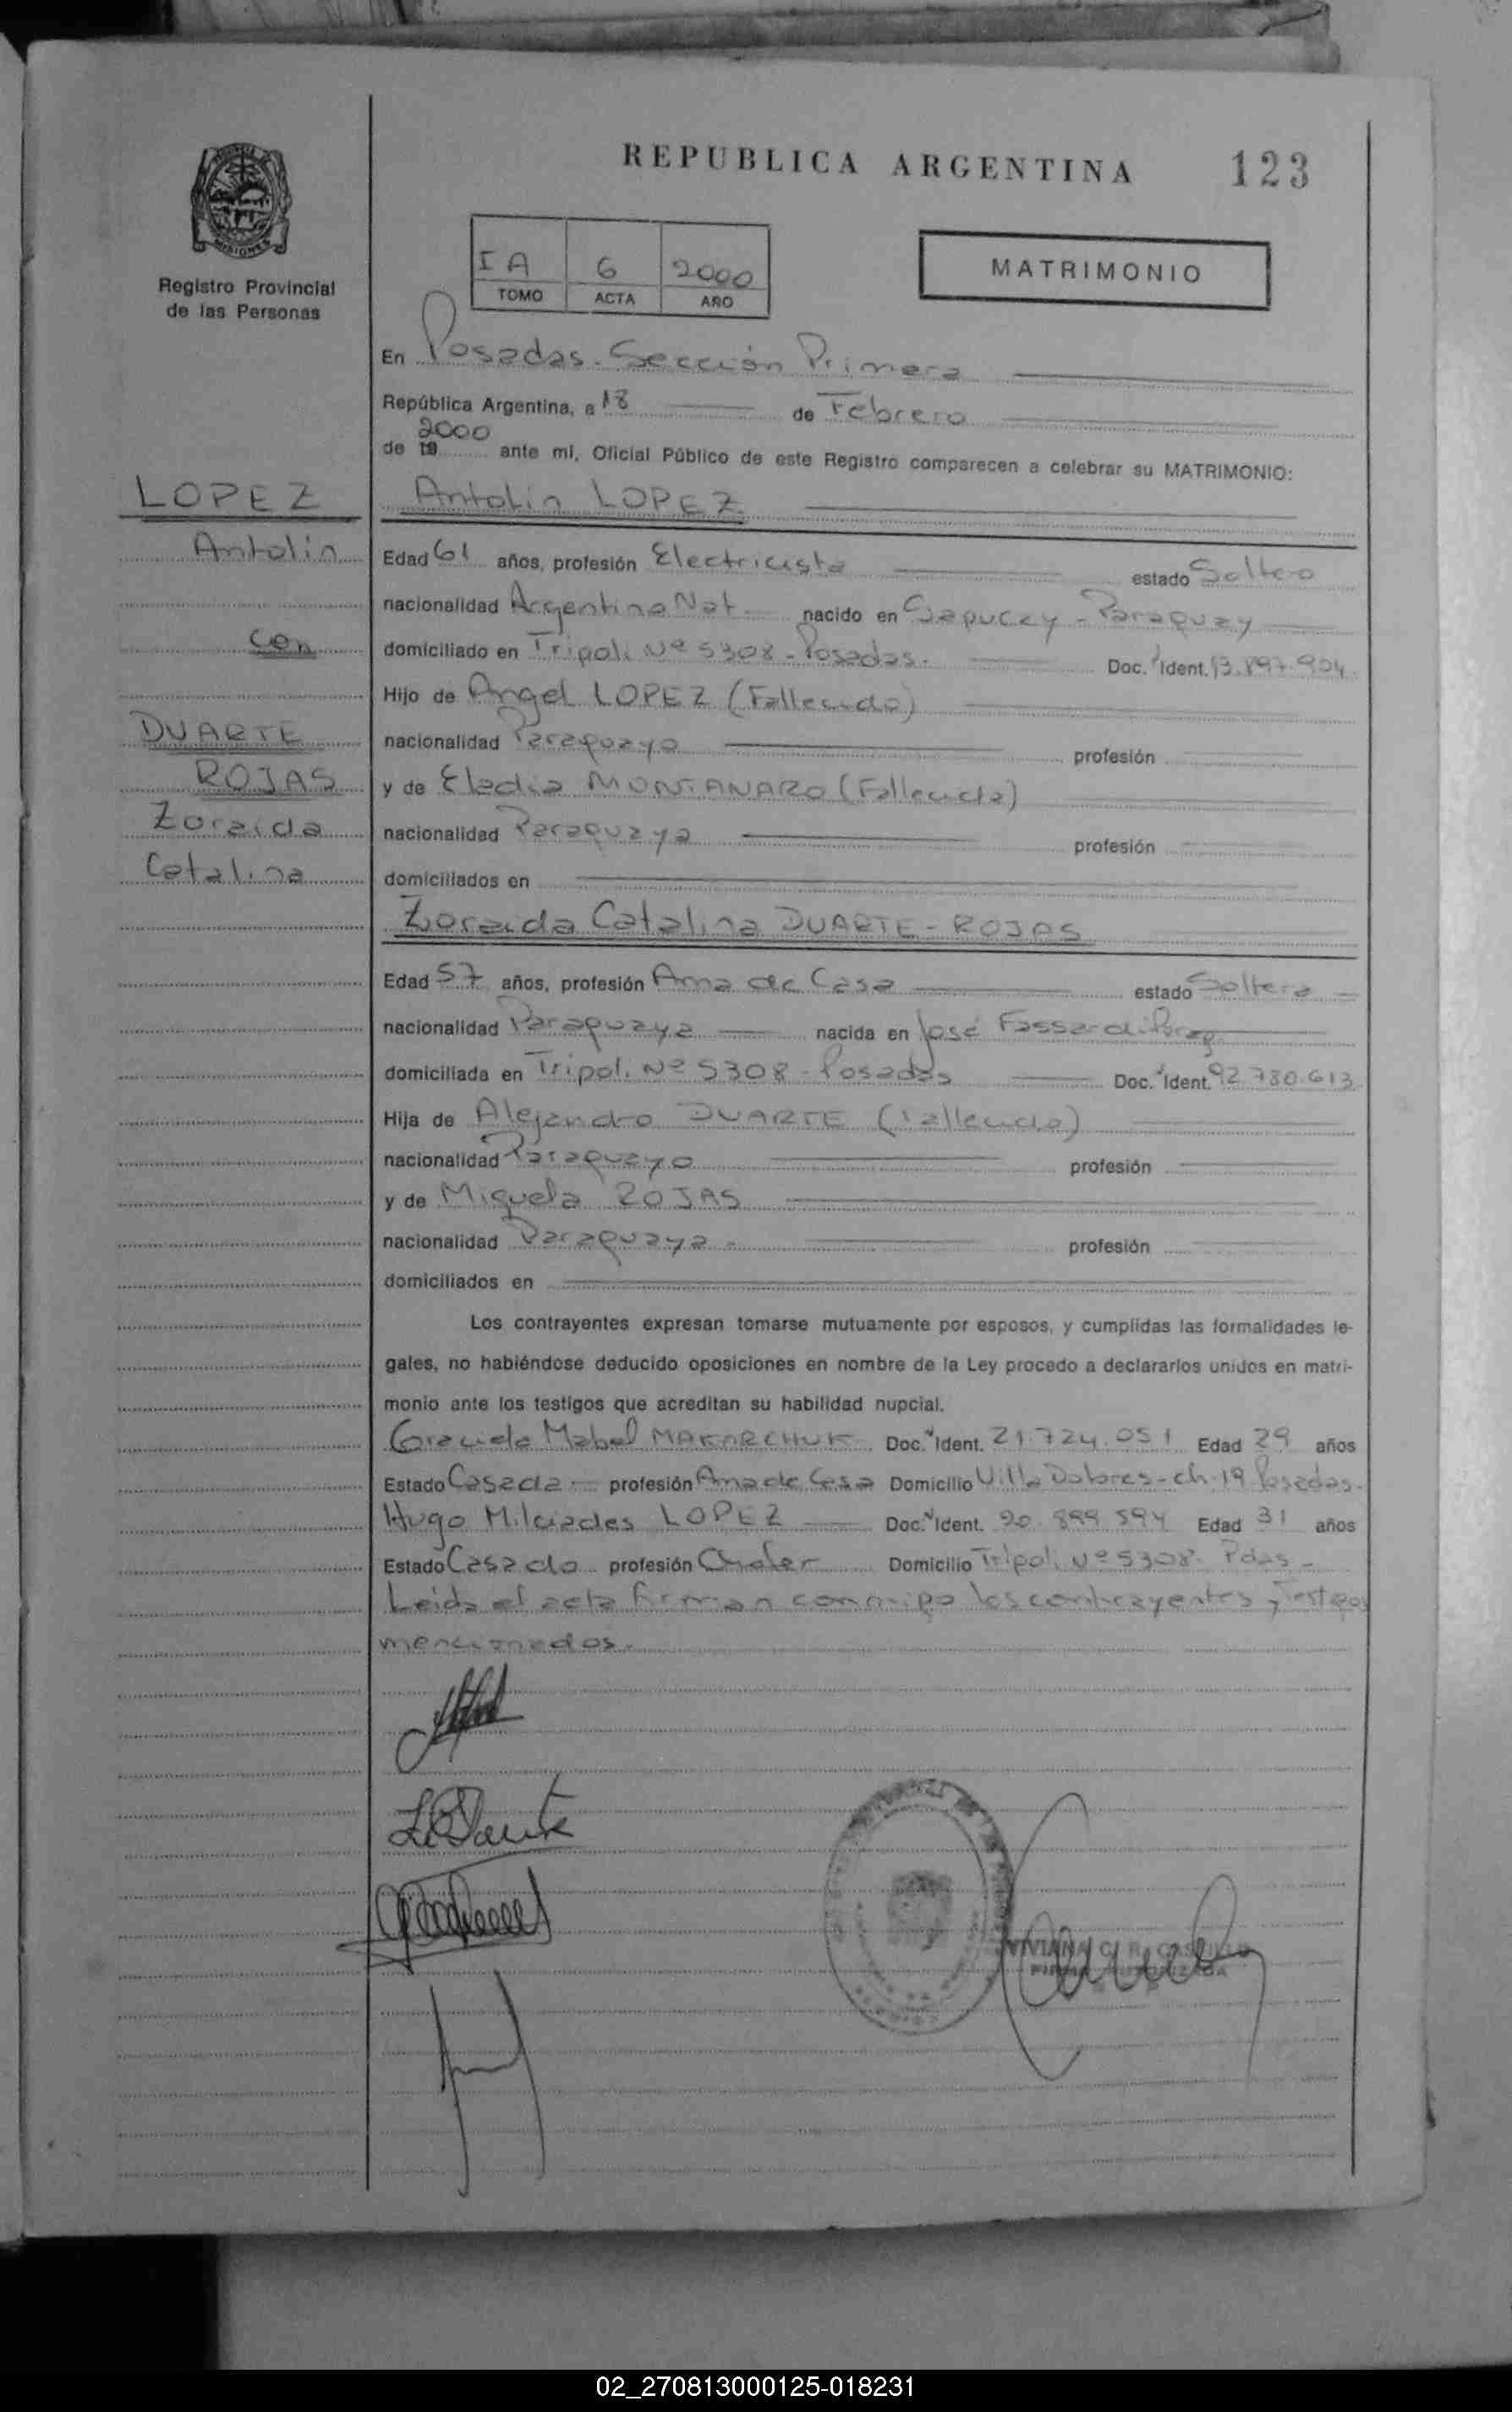 REPUBLICA ARGENTINA
123
MISIONES
Registro Provincial
de las Personas
IA 6 2000
TOMO ACTA AÑO
MATRIMONIO
En Posadas. Sección Primera
República Argentina, a 18 de Febrero
2000
de 19 ante mí, Oficial Público de este Registro comparecen a celebrar su MATRIMONIO:
LOPEZ
Antolín
con
DUARTE
ROJAS
Zoraida
Catalina
Antolín LOPEZ
Edad 61 años, profesión Electricista estado Soltero
nacionalidad Argentino Nat nacido en Sapucay - Paraguay
domiciliado en Tripoli Nº 5308 - Posadas. Doc. Ident. 13.897.904
Hijo de Angel LOPEZ (Fallecido)
nacionalidad Paraguayo profesión
y de Eladia MONTANARO (Fallecida)
nacionalidad Paraguaya profesión
domiciliados en
Zoraida Catalina DUARTE - ROJAS
Edad 57 años, profesión Ama de Casa estado Soltera
nacionalidad Paraguaya nacida en José Fassardi. Parag.
domiciliada en Tripoli Nº 5308 - Posadas Doc. Ident. 92.780.613
Hija de Alejandro DUARTE (Fallecido)
nacionalidad Paraguayo profesión
y de Miguela ROJAS
nacionalidad Paraguaya - profesión
domiciliados en
Los contrayentes expresan tomarse mutuamente por esposos, y cumplidas las formalidades le-
gales, no habiéndose deducido oposiciones en nombre de la Ley procedo a declararlos unidos en matri-
monio ante los testigos que acreditan su habilidad nupcial.
Graciela Mabel MAKARCHUK Doc. Ident. 21.724.051 Edad 29 años
Estado Casada profesión Ama de Casa Domicilio Villa Dolores - ch. 19 Posadas.
Hugo Milciades LOPEZ Doc. Ident. 20.899.594 Edad 31 años
Estado Casado profesión Chofer Domicilio Tripoli Nº 5308. Pdas -
Leida el acta firman conmigo los contrayentes y Testigos
mencionados.
VIVIANA C. R. CASTILLO
FIRMA AUTORIZADA
02_270813000125-018231